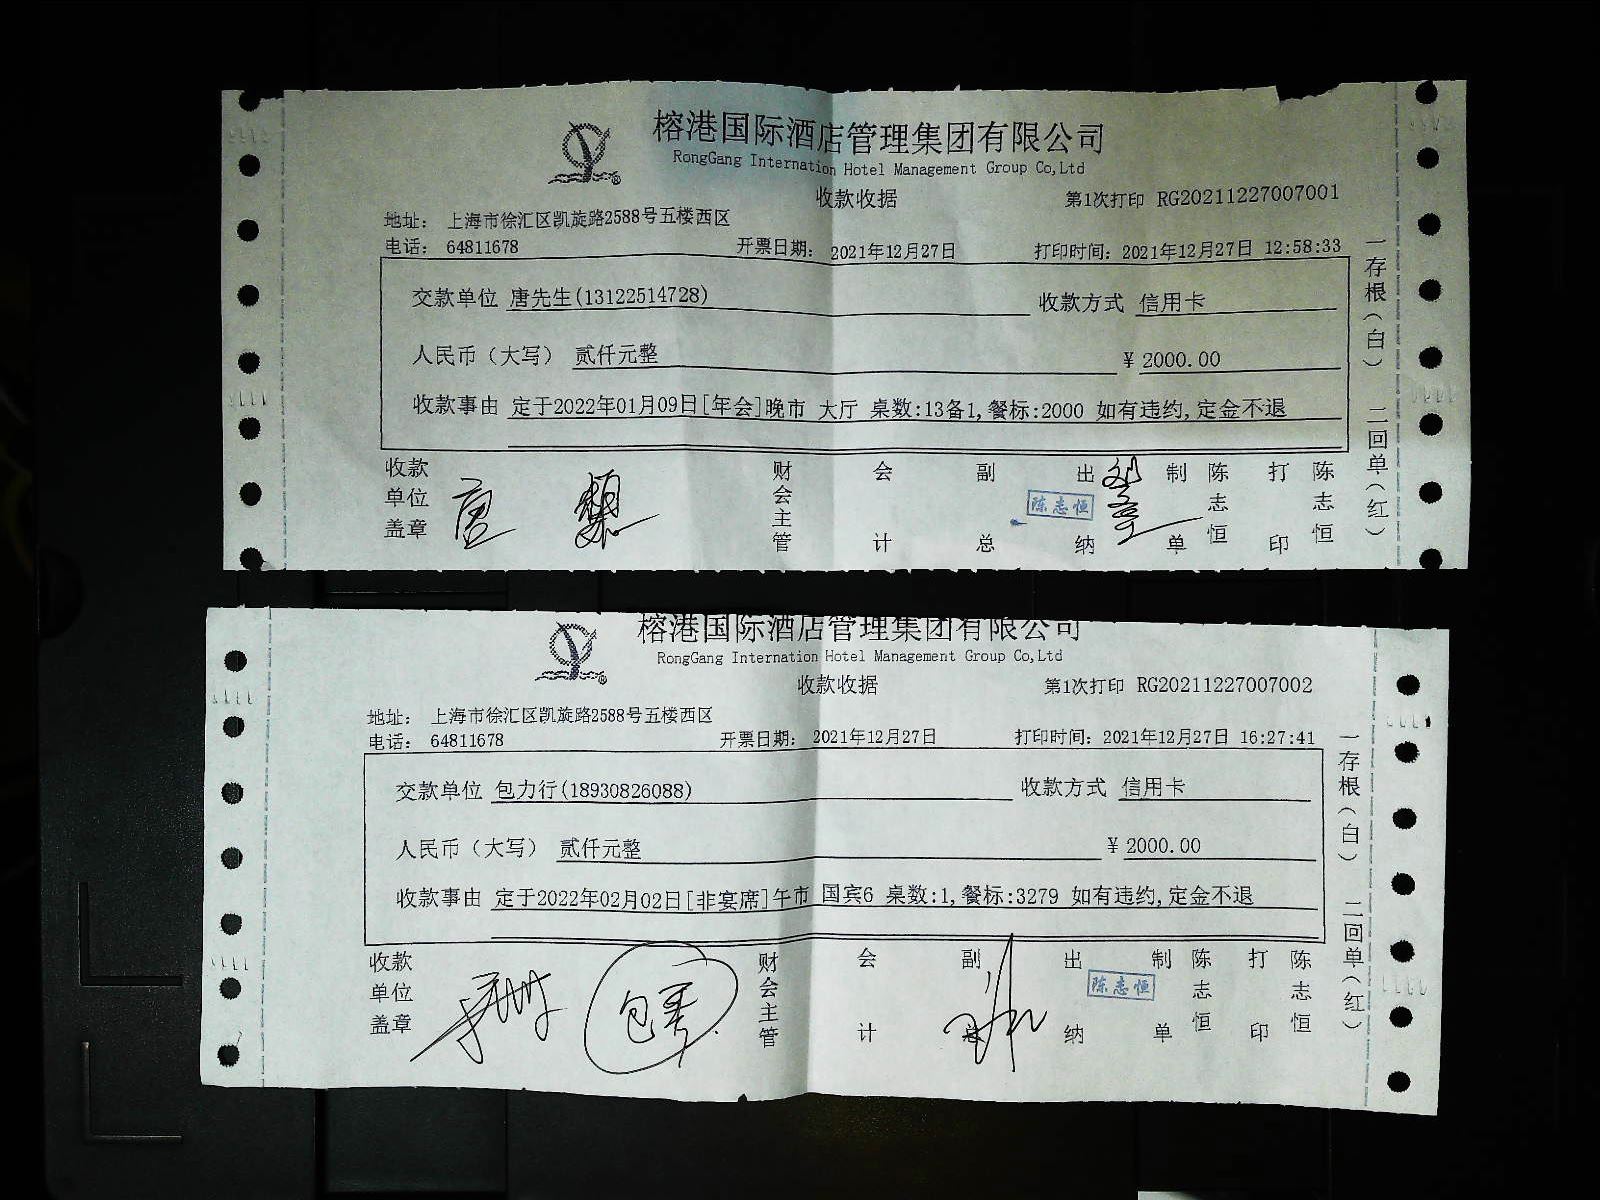 榕港国际酒店管理集团有限公司
RongGang Internation Hotel Management Group Co,Ltd
收款收据
第1次打印 RG20211227007001
地址: 上海市徐汇区凯旋路2588号五楼西区
电话: 64811678 开票日期: 2021年12月27日 打印时间: 2021年12月27日 12:58:33
交款单位 唐先生(13122514728) 收款方式 信用卡
人民币（大写） 贰仟元整 ¥ 2000.00
收款事由 定于2022年01月09日[年会]晚市 大厅 桌数:13备1,餐标:2000 如有违约,定金不退
收款单位盖章 唐 财会主管 会计 副总 出纳 陈志恒 制单 陈志恒 打印 陈志恒
一存根（白） 二回单（红）
榕港国际酒店管理集团有限公司
RongGang Internation Hotel Management Group Co,Ltd
收款收据
第1次打印 RG20211227007002
地址: 上海市徐汇区凯旋路2588号五楼西区
电话: 64811678 开票日期: 2021年12月27日 打印时间: 2021年12月27日 16:27:41
交款单位 包力行(18930826088) 收款方式 信用卡
人民币（大写） 贰仟元整 ¥ 2000.00
收款事由 定于2022年02月02日[非宴席]午市 国宾6 桌数:1,餐标:3279 如有违约,定金不退
收款单位盖章 包 财会主管 会计 副总 出纳 陈志恒 制单 陈志恒 打印 陈志恒
一存根（白） 二回单（红）